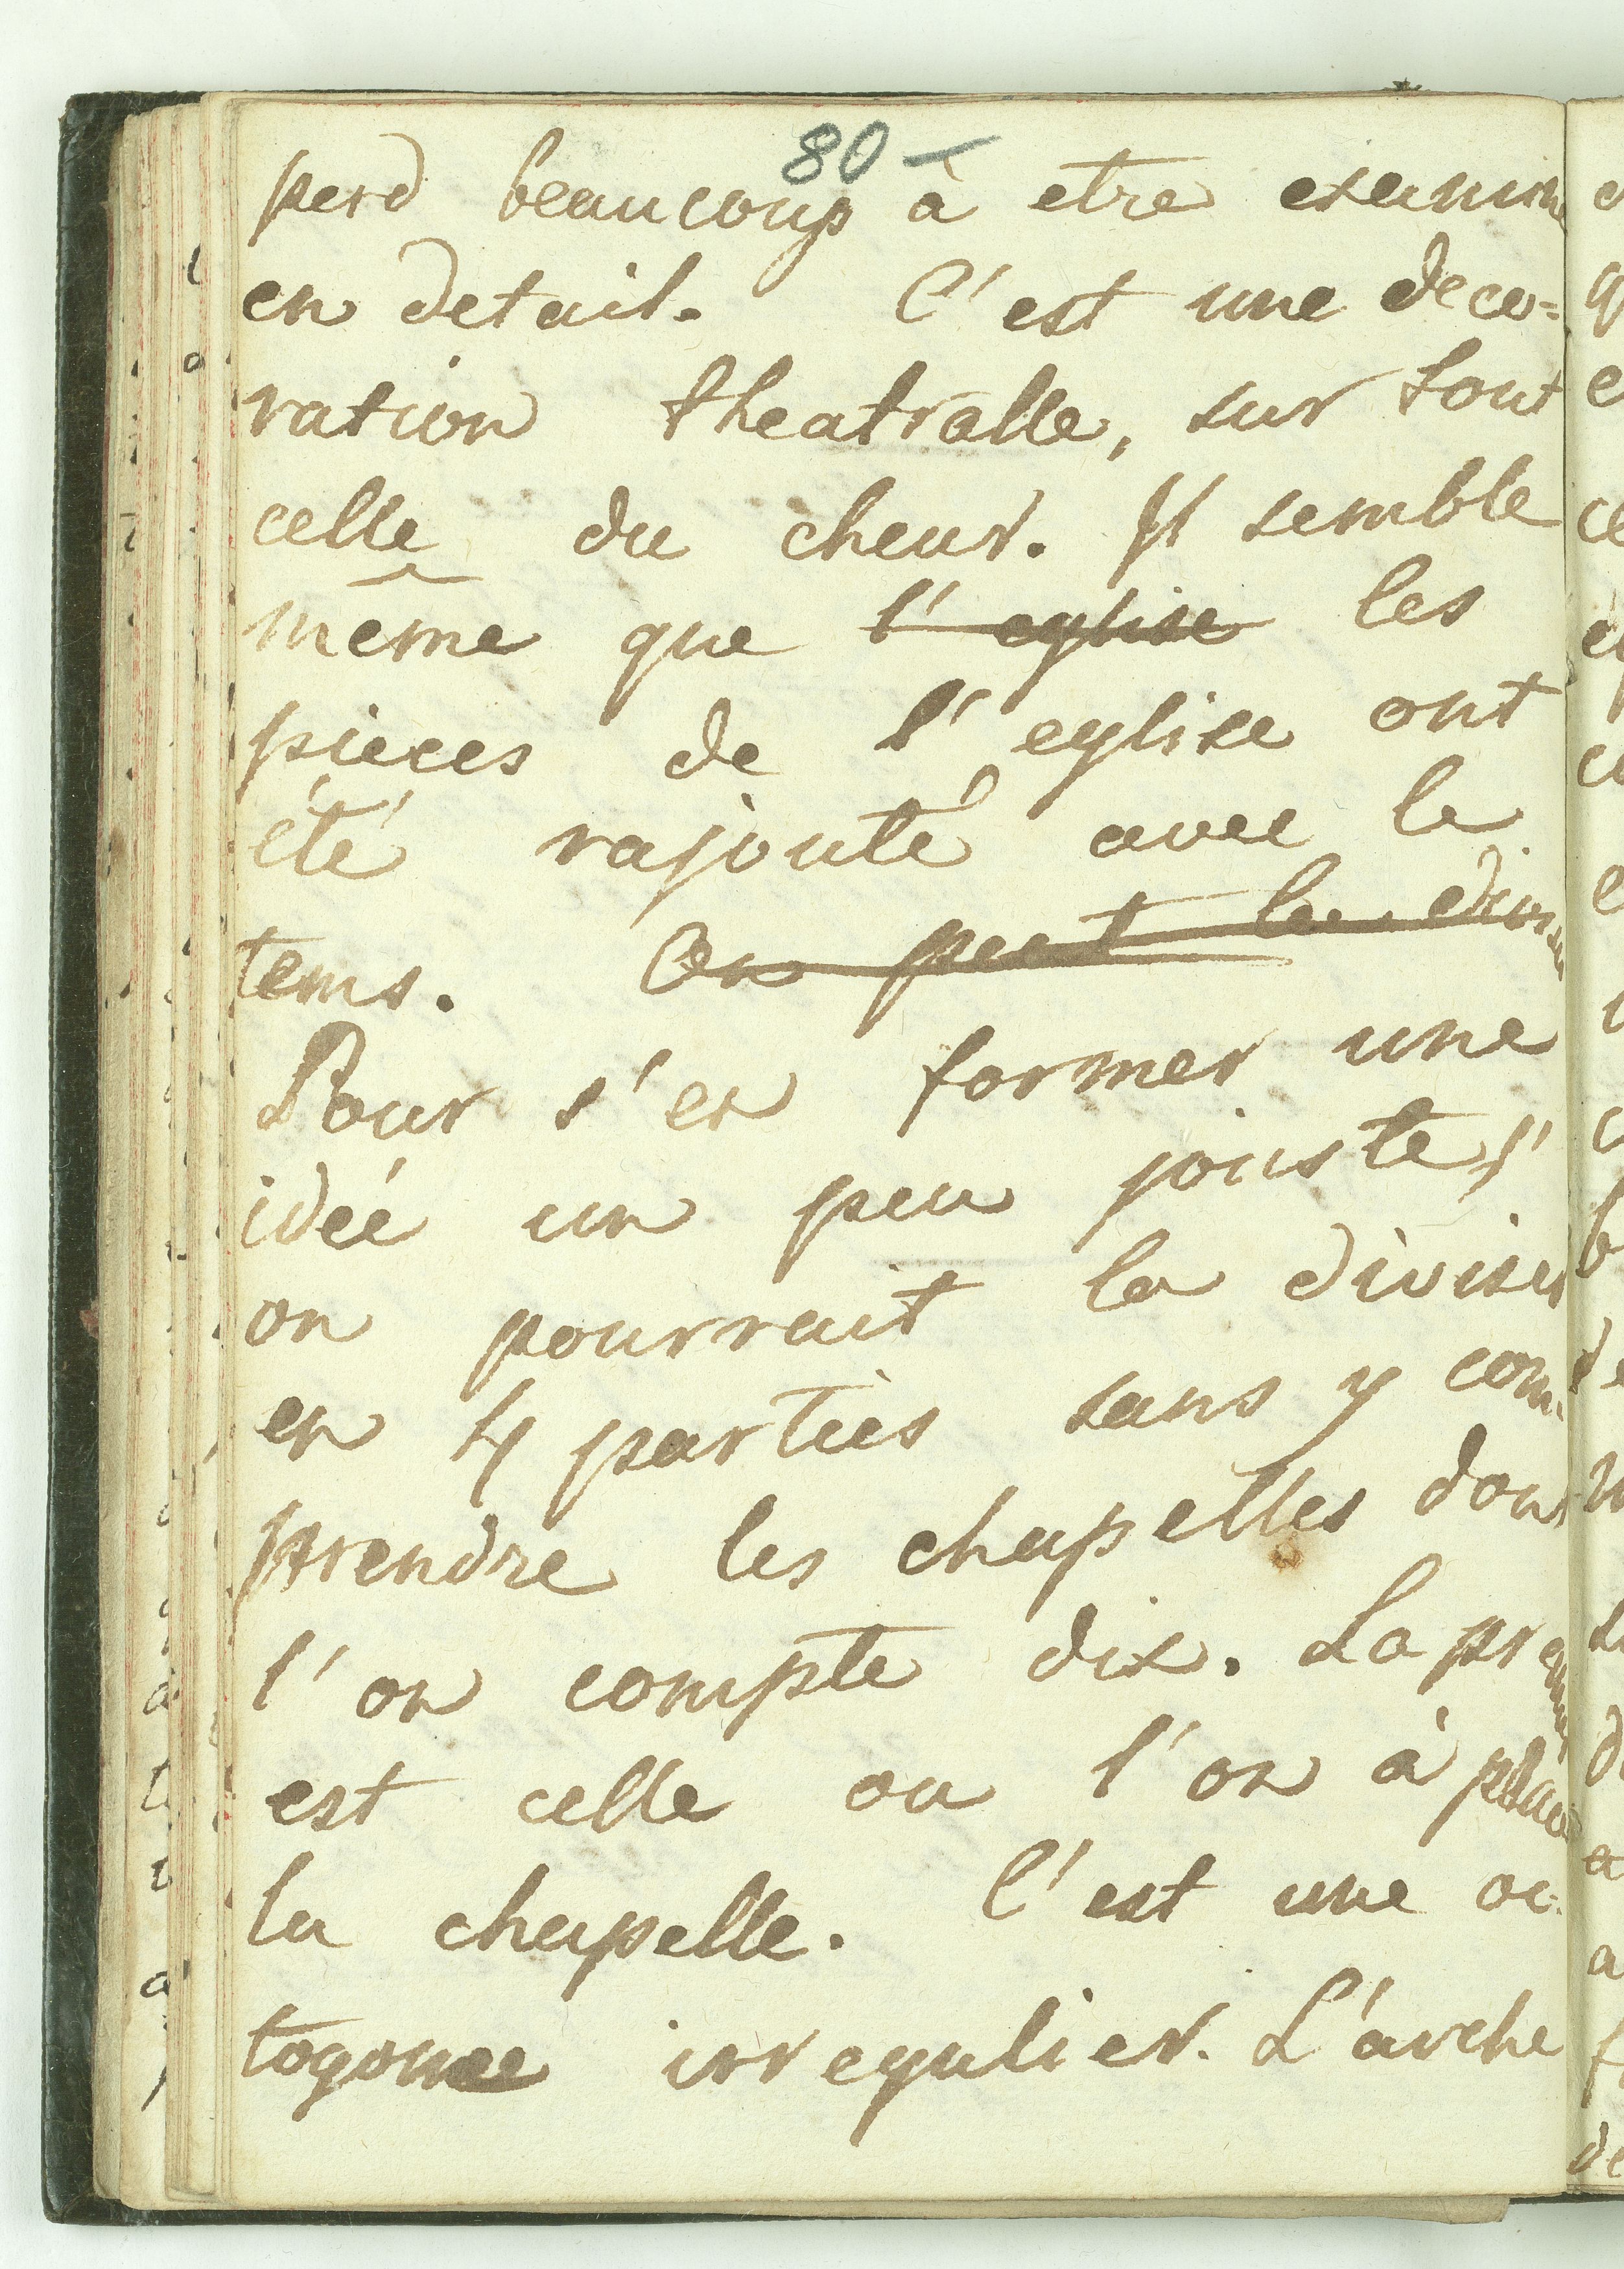 80 -
perd beaucoup à etre examin
en detail. C'est une deco=
ration theatralle, sur tout
celle du cheur. Il semble
même que l'eglise les
pieces de l'eglise ont
été rajouté avec le
tems. On peut la divi
Pour s'en former une
idée un peu jouste,
on pourrait la diviser
en 4 parties sans y com=
prendre les chapelles dont
l'on compte dix. La prem
est celle ou l'on à placé
la chapelle. C'est une oc=
togone irregulier. L'arche